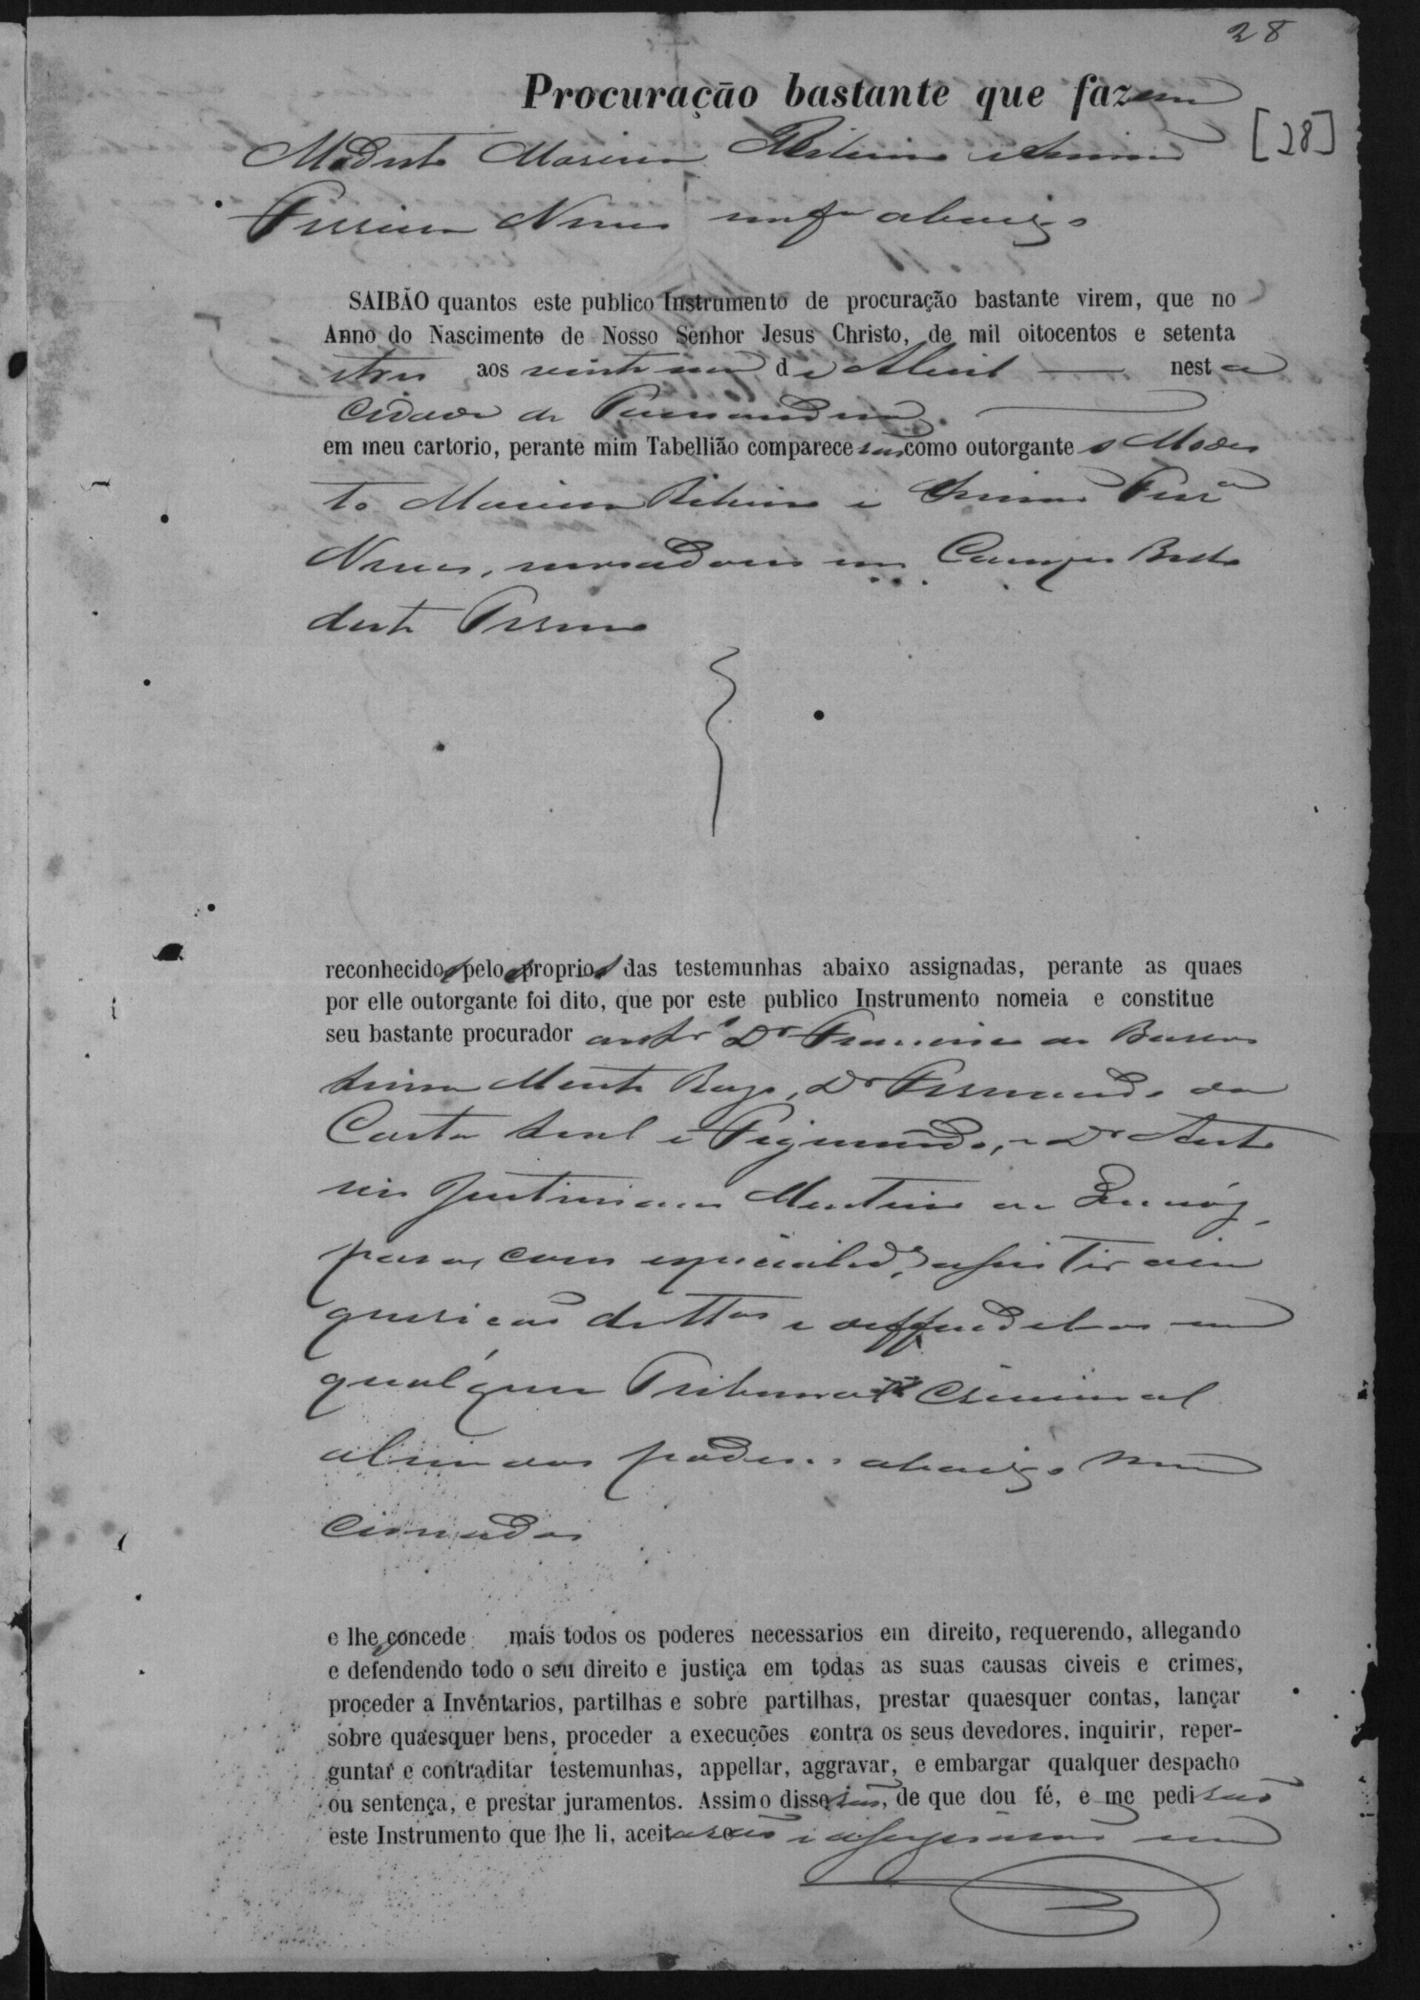 28
Procuração bastante que fazem
[28]
Modesto Moreira Ribeiro e
Pereira Nunes abaixo
SAIBÃO quantos este publico Instrumento de procuração bastante virem, que no
Anno do Nascimento de Nosso Senhor Jesus Christo, de mil oitocentos e setenta
e tres aos vinte um de Abril nesta
Cidade de
em meu cartorio, perante mim Tabellião comparecerão como outorgantes Modes
to Moreira Ribeiro e Ferrª
Nunes, moradores em Campos
deste Termo
reconhecidos pelos proprios das testemunhas abaixo assignadas, perante as quaes
por elle outorgante foi dito, que por este publico Instrumento nomeia e constitue
seu bastante procurador aos Srs Dr Francisco de Barros
Dr Fernando da
Costa Leal e Figmundo, e Dr Anto
nio Justiniano Monteiro de
para com especialide assistir a in
quirições dellas e deffendelos em
qualquer Tribunal Criminal
alem dos poderes abaixo men
cionados
e lhe concede mais todos os poderes necessarios em direito, requerendo, allegando
e defendendo todo o seu direito e justiça em todas as suas causas civeis e crimes,
proceder a Inventarios, partilhas e sobre partilhas, prestar quaesquer contas, lançar
sobre quaesquer bens, proceder a execuções contra os seus devedores, inquirir, reper-
guntar e contraditar testemunhas, appellar, aggravar, e embargar qualquer despacho
ou sentença, e prestar juramentos. Assim o disserão, de que dou fé, e me pedirão
este Instrumento que lhe li, aceitarão e assignarão com